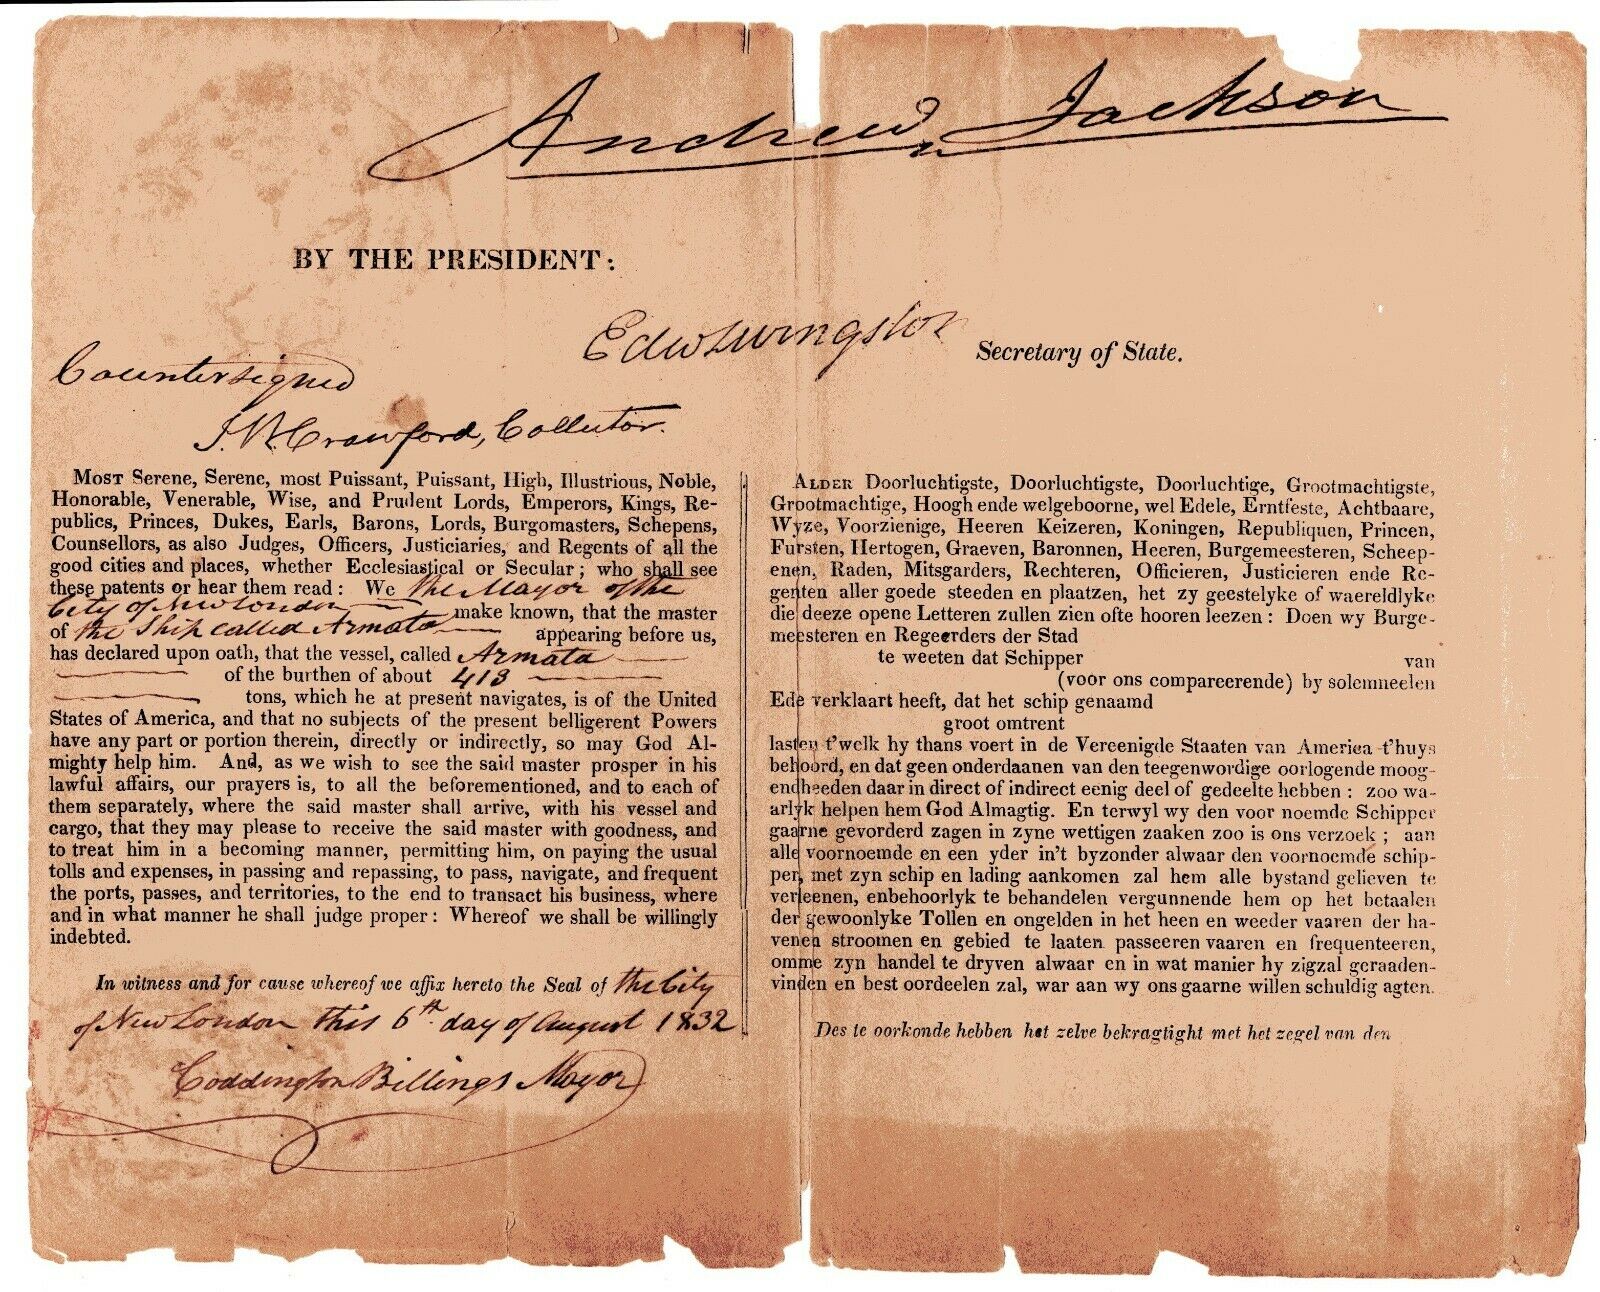 Andrew Jackson
BY THE PRESIDENT:
Edw Livingston Secretary of State.
Countersigned
Crawford, Collector.
MOST Serene, Serene, most Puissant, Puissant, High, Illustrious, Noble,
Honorable, Venerable, Wise, and Prudent Lords, Emperors, Kings, Re-
publics, Princes, Dukes, Earls, Barons, Lords, Burgomasters, Schepens,
Counsellors, as also Judges, Officers, Justiciaries, and Regents of all the
good cities and places, whether Ecclesiastical or Secular; who shall see
these patents or hear them read: We the Mayor of the
City of New London make known, that the master
of the Ship called Armata appearing before us,
has declared upon oath, that the vessel, called Armata
of the burthen of about 413
tons, which he at present navigates, is of the United
States of America, and that no subjects of the present belligerent Powers
have any part or portion therein, directly or indirectly, so may God Al-
mighty help him. And, as we wish to see the said master prosper in his
lawful affairs, our prayers is, to all the beforementioned, and to each of
them separately, where the said master shall arrive, with his vessel and
cargo, that they may please to receive the said master with goodness, and
to treat him in a becoming manner, permitting him, on paying the usual
tolls and expenses, in passing and repassing, to pass, navigate, and frequent
the ports, passes, and territories, to the end to transact his business, where
and in what manner he shall judge proper: Whereof we shall be willingly
indebted.
In witness and for cause whereof we affix hereto the Seal of the City
of New London this 6th day of August 1832
Coddington Billings Mayor
ALDER Doorluchtigste, Doorluchtigste, Doorluchtige, Grootmachtigste,
Grootmachtige, Hoogh ende welgeboorne, wel Edele, Erntfeste, Achtbaare,
Wyze, Voorzienige, Heeren Keizeren, Koningen, Republiquen, Princen,
Fursten, Hertogen, Graeven, Baronnen, Heeren, Burgemeesteren, Scheep-
enen, Raden, Mitsgarders, Rechteren, Officieren, Justicieren ende Re-
genten aller goede steeden en plaatzen, het zy geestelyke of waereldlyke
die deeze opene Letteren zullen zien ofte hooren leezen: Doen wy Burge-
meesteren en Regeerders der Stad
te weeten dat Schipper van
(voor ons compareerende) by solemneelen
Ede verklaart heeft, dat het schip genaamd
groot omtrent
lasten t'welk hy thans voert in de Vereenigde Staaten van America t'huys
behoord, en dat geen onderdaanen van den teegenwordige oorlogende moog-
endheeden daar in direct of indirect eenig deel of gedeelte hebben: zoo wa-
arlyk helpen hem God Almagtig. En terwyl wy den voor noemde Schipper
gaarne gevorderd zagen in zyne wettigen zaaken zoo is ons verzoek; aan
alle voornoemde en een yder in't byzonder alwaar den voornoemde schip-
per, met zyn schip en lading aankomen zal hem alle bystand gelieven te
verleenen, enbehoorlyk te behandelen vergunnende hem op het betaalen
der gewoonlyke Tollen en ongelden in het heen en weeder vaaren der ha-
venen stroomen en gebied te laaten passeeren vaaren en frequenteeren,
omme zyn handel te dryven alwaar en in wat manier hy zigzal geraaden-
vinden en best oordeelen zal, war aan wy ons gaarne willen schuldig agten.
Des te oorkonde hebben het zelve bekragtight met het zegel van den